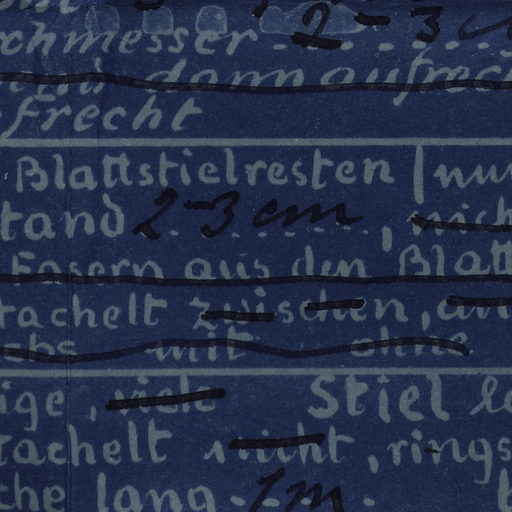 chmesser . 2-3 c
und dann aufrech
frecht
Blattstielresten | nur
tand 2-3 cm . . . , nich
Fasern aus den Blatt
tachelt zwischen, an
chs mit ohne
ige, viele Stiel la
tachelt nicht, rings
che lang . 1m .